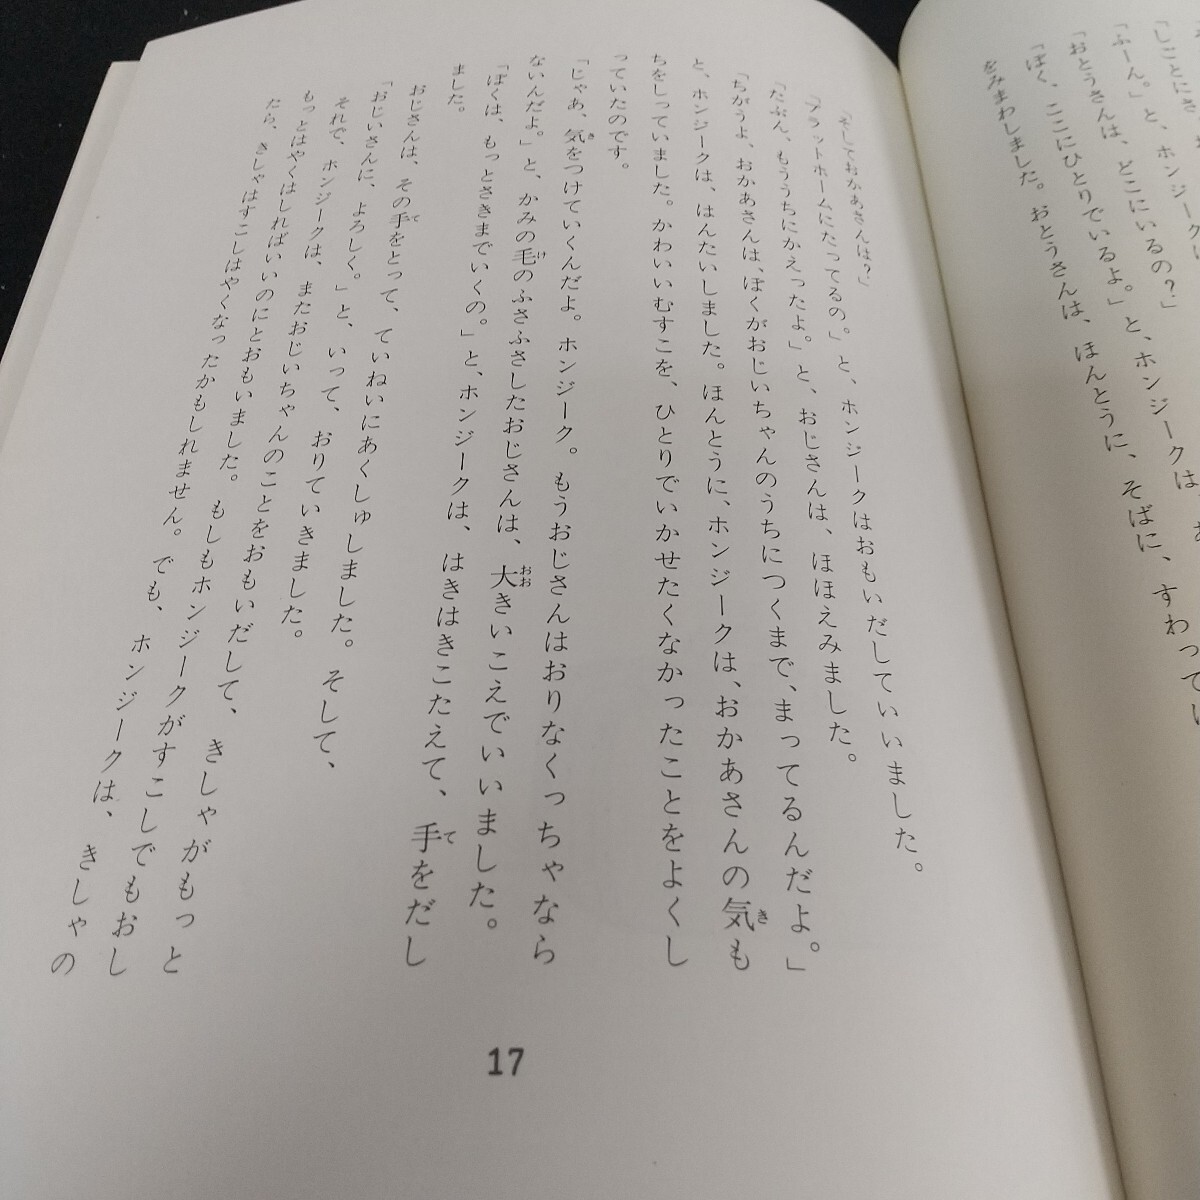 しことにさ
「ふーん。」と、ホンジークは
「おとうさんは、どこにいるの？」
「ぼく、ここにひとりでいるよ。」と、ホンジークは、あ
をみまわしました。おとうさんは、ほんとうに、そばに、すわってい
「そしておかあさんは？」
「プラットホームにたってるの。」と、ホンジークはおもいだしていいました。
「たぶん、もううちにかえったよ。」と、おじさんは、ほほえみました。
「ちがうよ、おかあさんは、ぼくがおじいちゃんのうちにつくまで、まってるんだよ。」
と、ホンジークは、はんたいしました。ほんとうに、ホンジークは、おかあさんの気も
ちをしっていました。かわいいむすこを、ひとりでいかせたくなかったことをよくし
っていたのです。
「じゃあ、気をつけていくんだよ。ホンジーク。もうおじさんはおりなくっちゃなら
ないんだよ。」と、かみの毛のふさふさしたおじさんは、大きいこえでいいました。
「ぼくは、もっとさきまでいくの。」と、ホンジークは、はきはきこたえて、手をだし
ました。
おじさんは、その手をとって、ていねいにあくしゅしました。そして、
「おじいさんに、よろしく。」と、いって、おりていきました。
それで、ホンジークは、またおじいちゃんのことをおもいだして、きしゃがもっと
もっとはやくはしればいいのにとおもいました。もしもホンジークがすこしでもおし
たら、きしゃはすこしはやくなったかもしれません。でも、ホンジークは、きしゃの
17